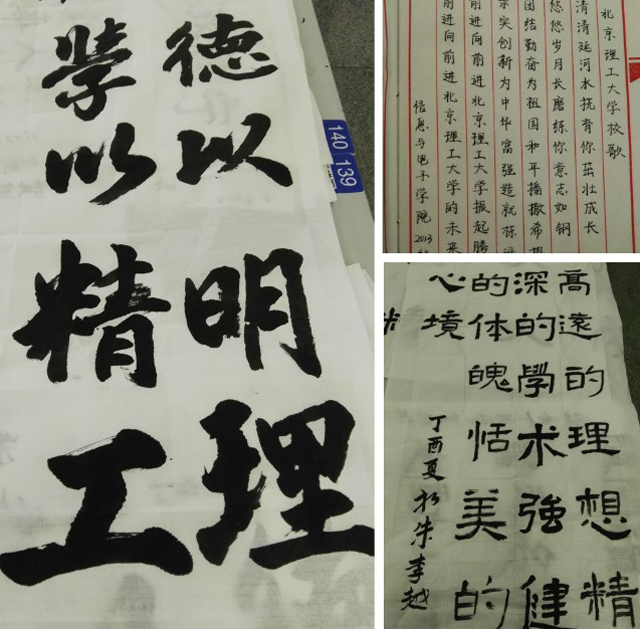 德以明理
學以精工
140
139
北京理工大学校歌
清清延河水抚育你茁壮成长
悠悠岁月长磨练你意志如钢
团结勤奋为祖国和平播撒希
实创新为中华富强造就栋
前进向前进北京理工大学振起腾
前进向前进北京理工大学的未来
信息与电子学院2013
高遠的理想精
深的學术強健
的体魄恬美的
心境
丁酉夏 朱李越